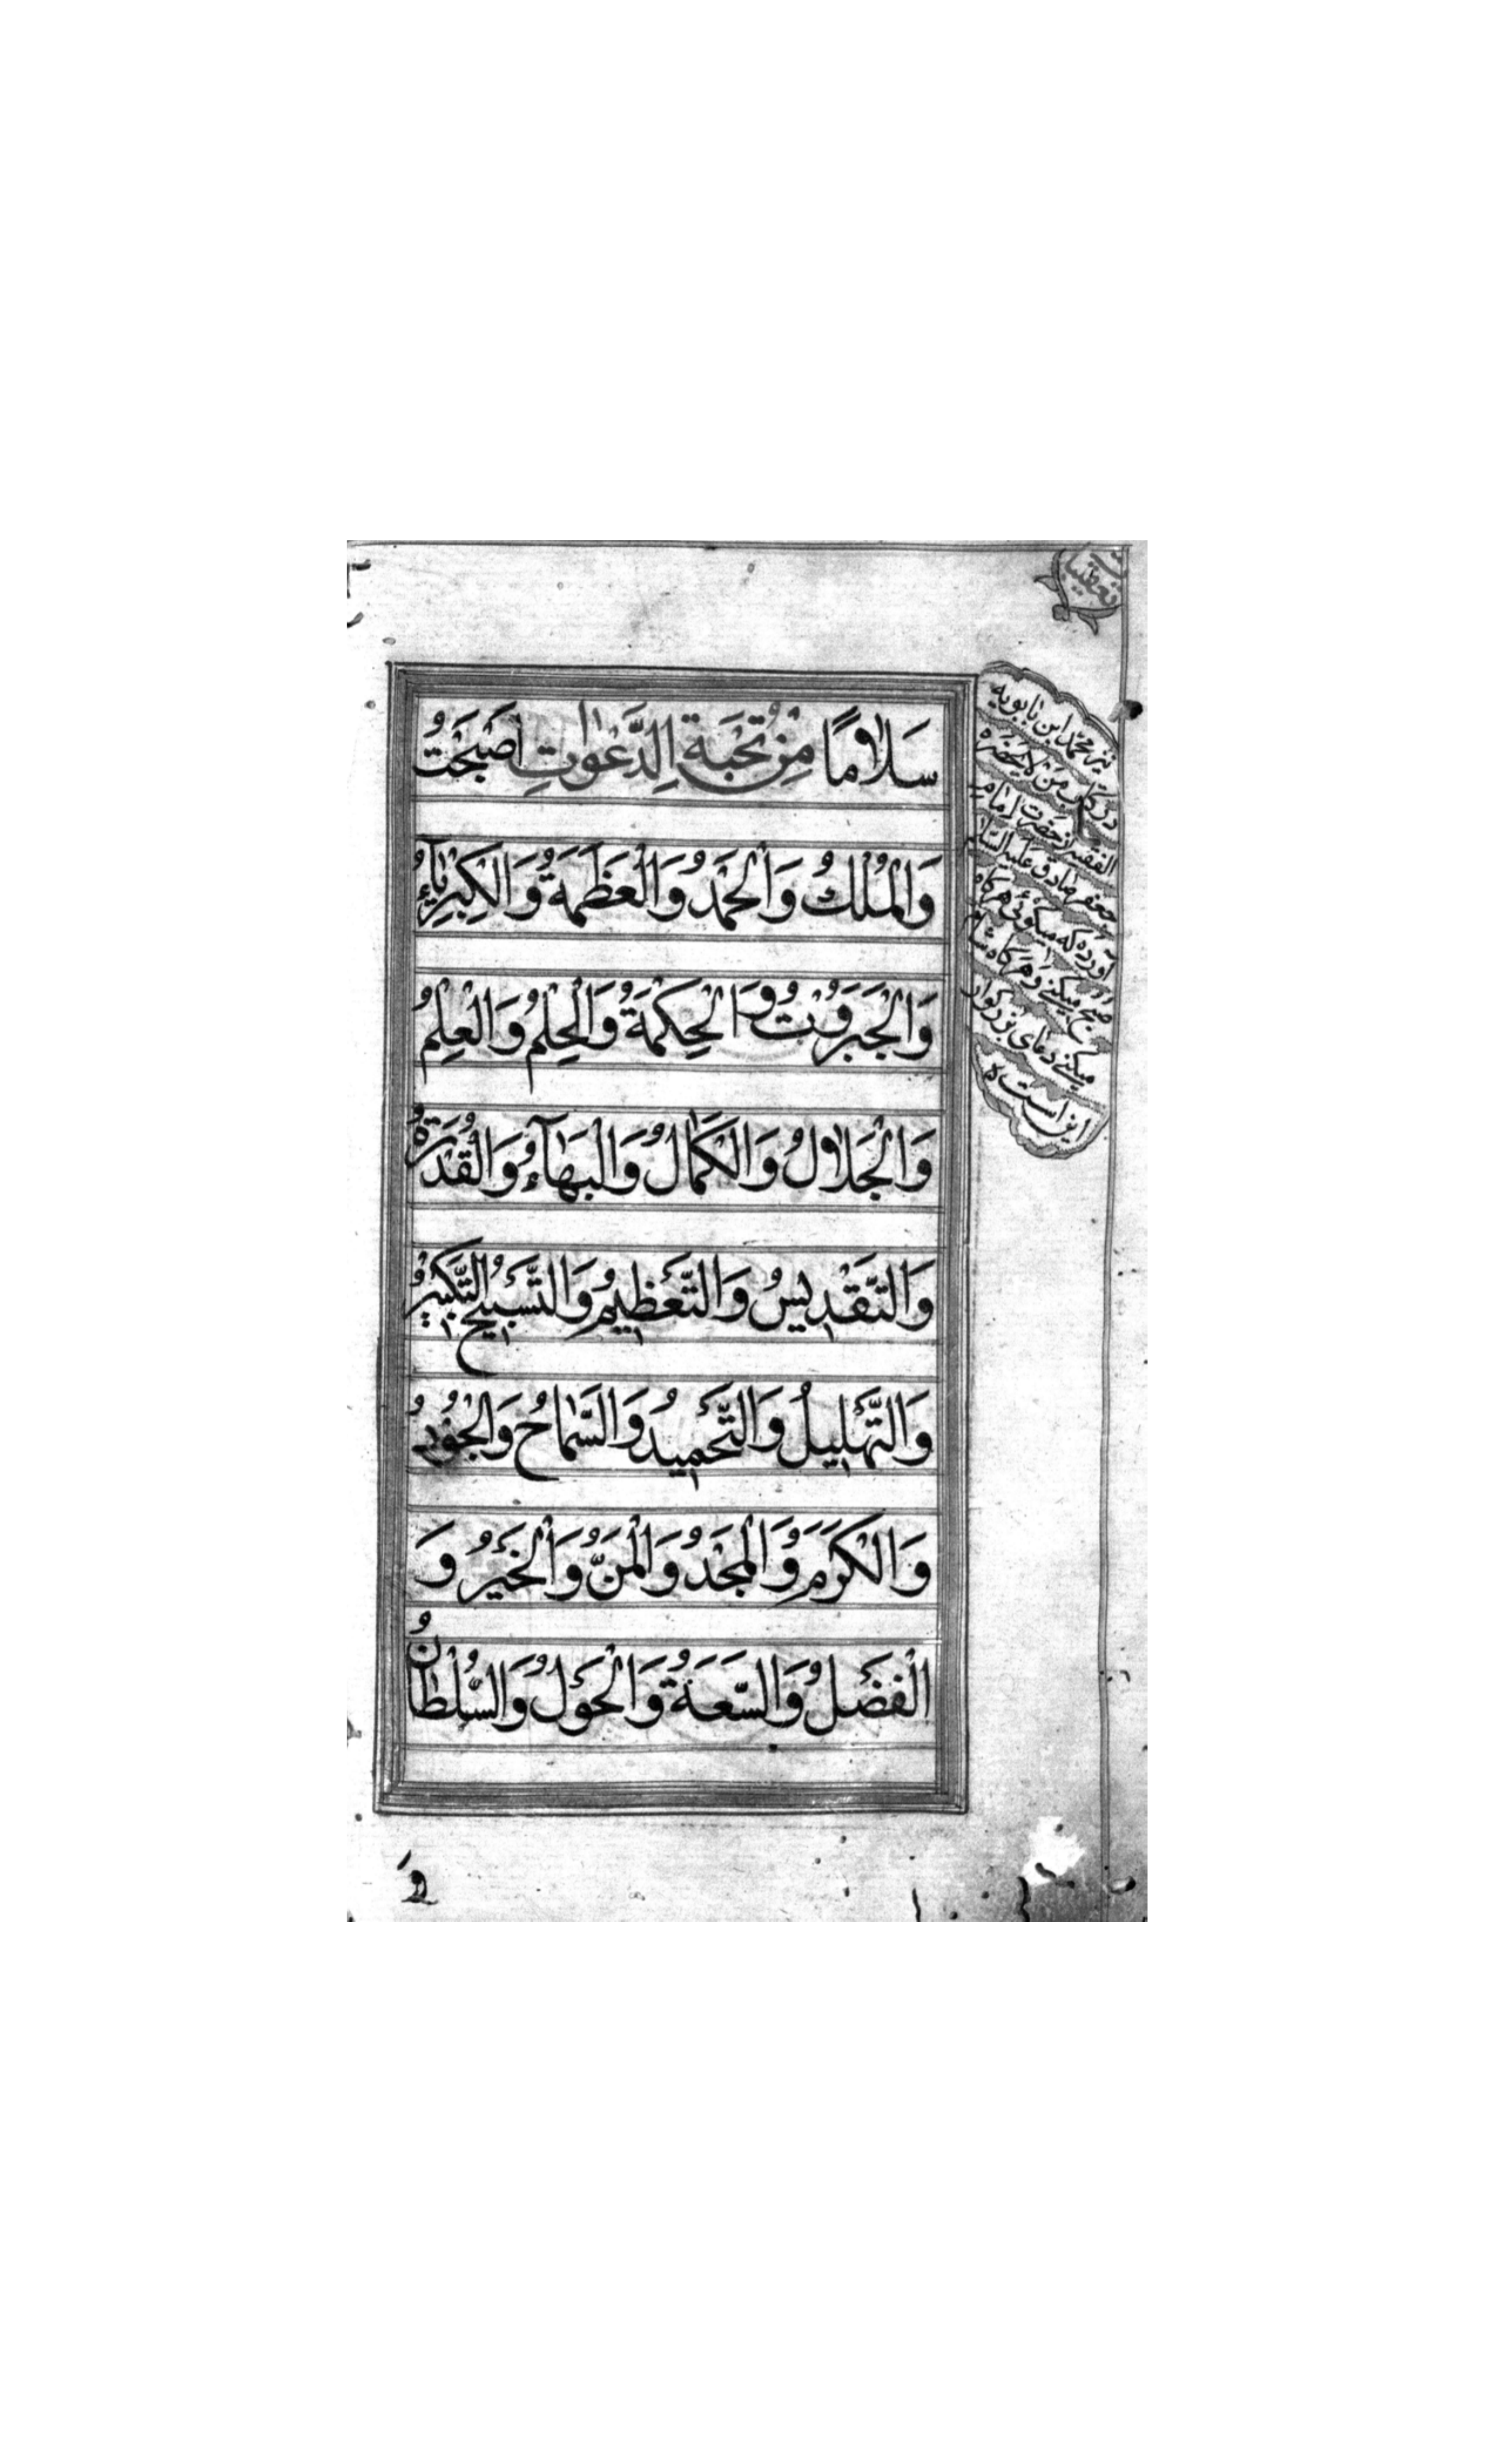 تعقیبات
سَلَامًا مِنْ نُخْبَةِ الدَّعَوَاتِ اَصْبَحْتُ
وَالْمُلْكُ وَالْحَمْدُ وَالْعَظَمَةُ وَالْكِبْرِيَآءُ
وَالْجَبَرُوْتُ وَالْحِكْمَةُ وَالْحِلْمُ وَالْعِلْمُ
وَالْجَلَالُ وَالْكَمَالُ وَالْبَهَآءُ وَالْقُدْرَةُ
وَالتَّقْدِيسُ وَالتَّعْظِيمُ وَالتَّسْبِيحُ التَّكْبِيرُ
وَالتَّهْلِيلُ وَالتَّحْمِيدُ وَالسَّمَاحُ وَالْجُوْدُ
وَالْكَرَمُ وَالْمَجْدُ وَالْمَنُّ وَالْخَيْرُ وَ
الْفَضْلُ وَالسَّعَةُ وَالْحَوْلُ وَالسُّلْطَانُ
نیز محمد ابن بابویه
در کتاب من لا یحضره
الفقیه از حضرت امام
جعفر صادق علیه السلام
آورده که میگوئی هرگاه
صبح میکنی و هرگاه شام
میکنی دعای بزرگوار
این است
وَ